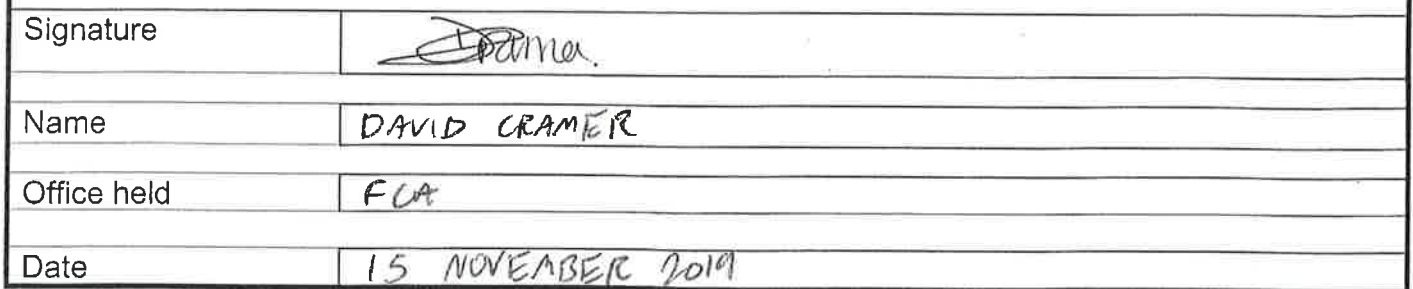 Signature
Name DAVID CRAMER
Office held FCA
Date 15 NOVEMBER 2019